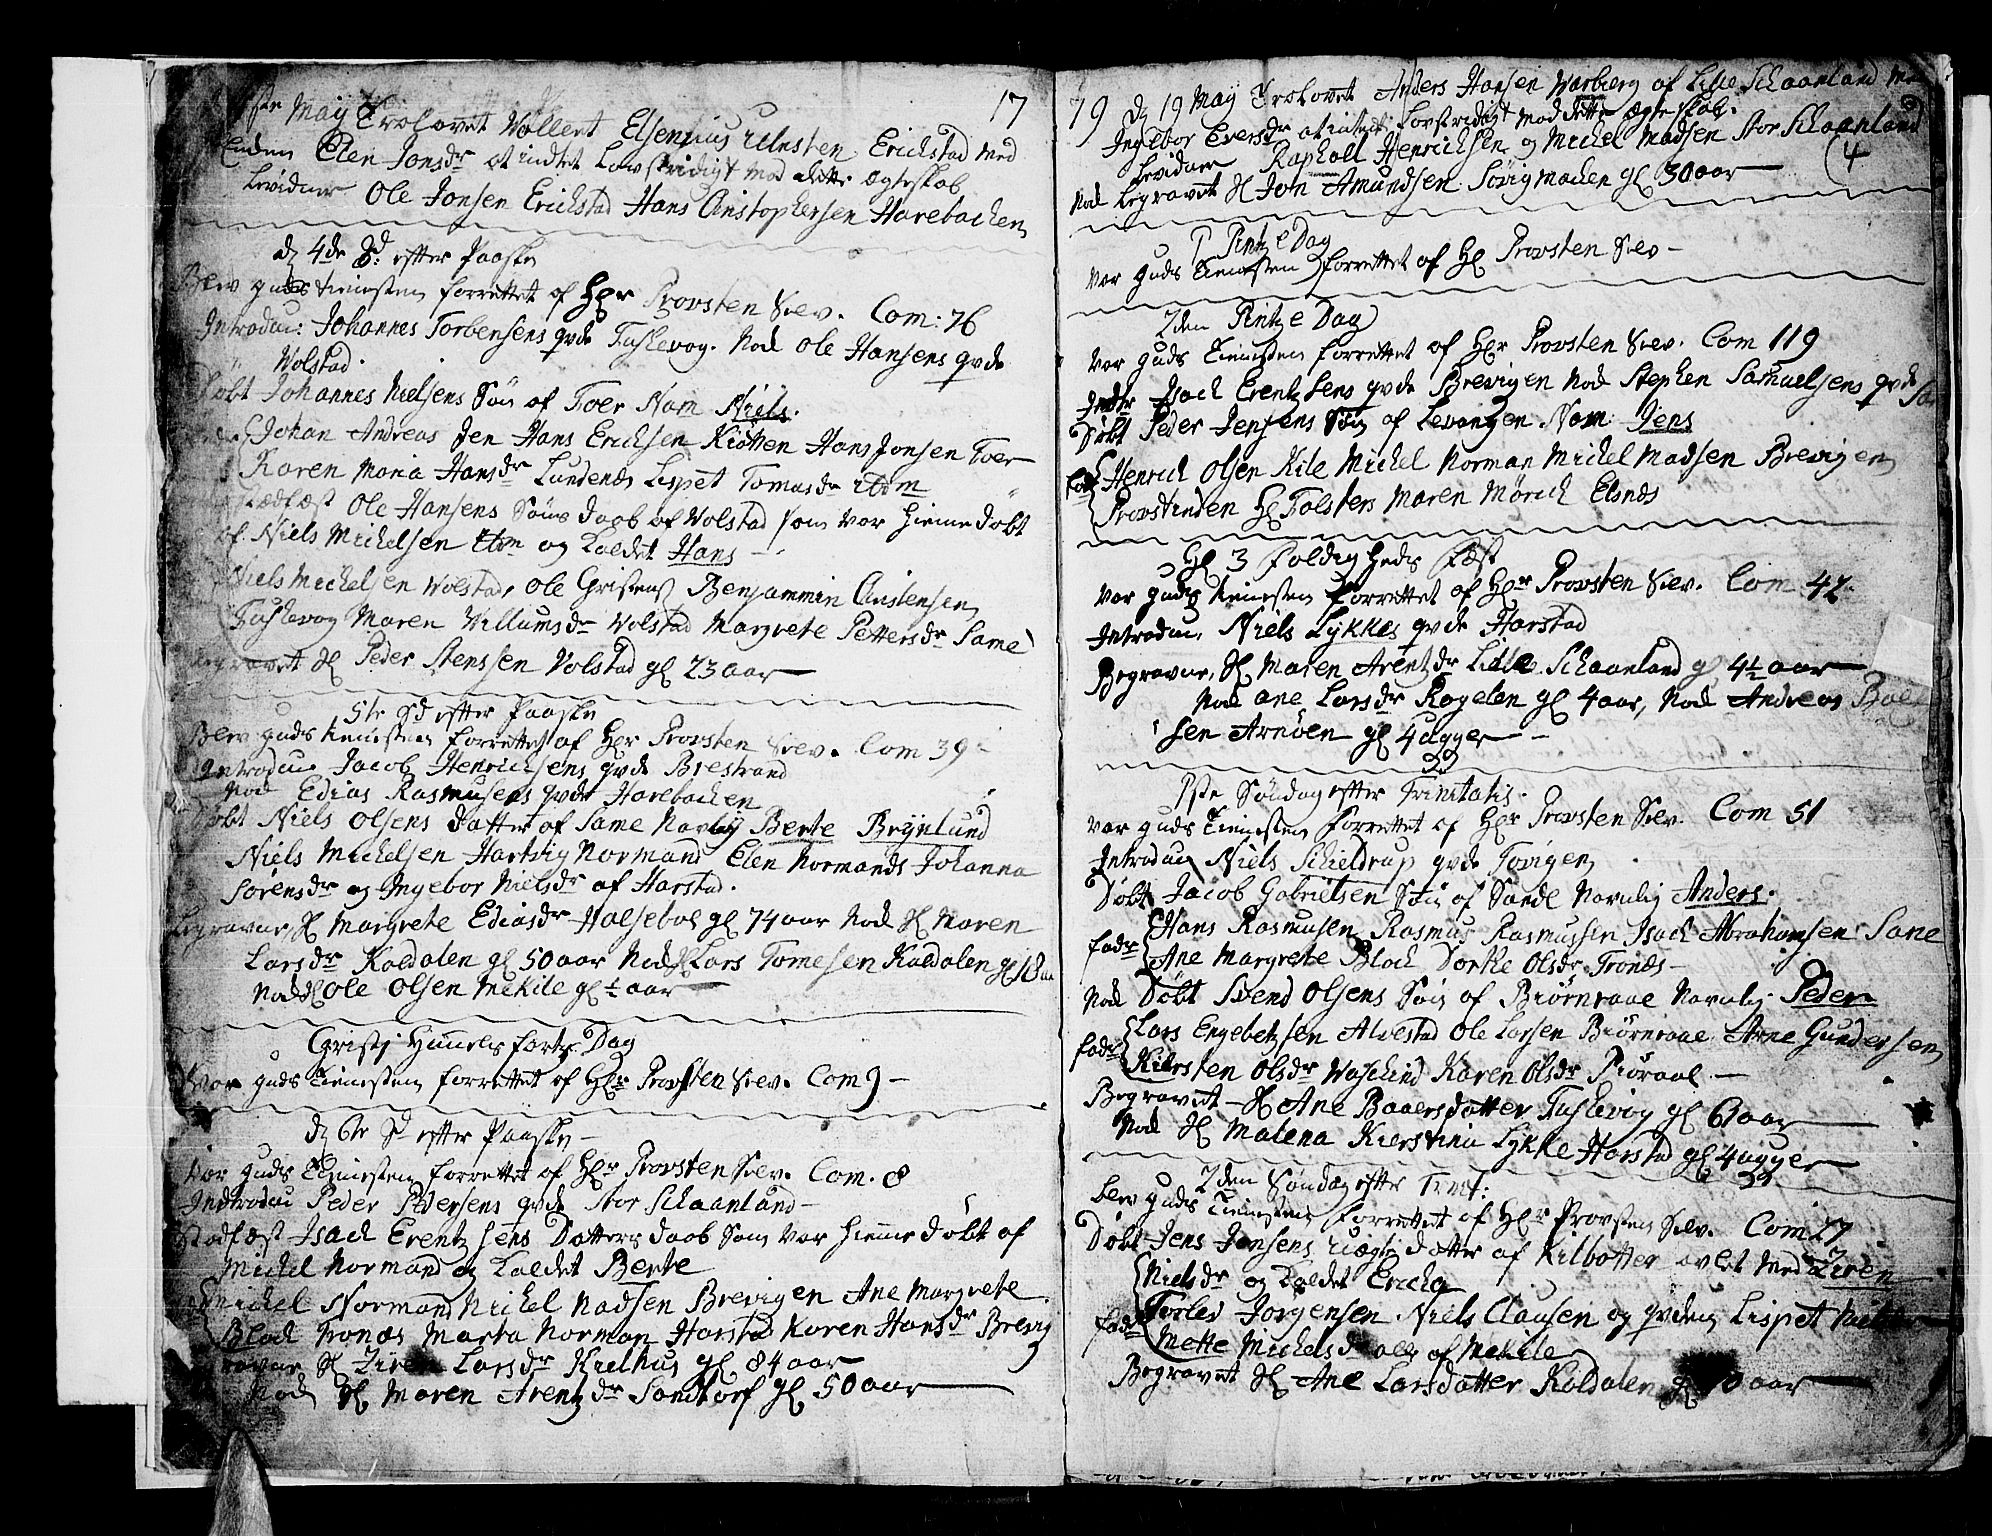 ste Maÿ Trolovet Wollert Elsenius Elnsten Erichstad med 17
Enden Elen Jonsdr at indtet Lovstridigt mod dette Ægteskab
Levidner Ole Jonsen Erichstad Hans Christophersen Harebachen
d 4de Sd: efter Paaske
Blev guds tienesten forrettet af Hr Provsten Siev. Com: 76
Introdu: Johannes Torbensens qvde Fuskevog. Nok Ole Hansens qvde
Wolstad.
Døbt Johannes Nielsens Søn af Toer Nam Niels.
Johan Andreas Jen Hans Erichsen Kiøtten Hans Jonsen Toer
Karen Maria Hansdr Lundenes Lispet Tomasdr ibdm
Stadfæst Ole Hansens Søns daab af Volstad som var hieme døbt
af Niels Michelsen ibdm og Kaldet Hans
Niels Michelsen Wolstad, Ole Gristens Benjammin Christensen
Fuskevog Maren Villumsdr Wolstad Margrete Pettersdr Same
Begravet Sl Peder Stenssen Volstad gl 23 aar
5te Sd efter Paaske
Blev guds tienesten forrettet af Hr Provsten Siev. Com 39
Introdu Jacob Henrichsens qvde Brestrand
Nok Edias Rasmusens qvde Harebachen
Døbt Niels Olsens datter af Same Navlig Berte Brÿnlund
Niels Michelsen Hartvig Normand Elen Normands Johanna
Sørensdr og Ingebor Nielsdr af Harstad.
Begravne, Sl Margrete Ediasdr Halsebøe gl 74 aar Nok Sl Maren
Larsdr Kaldalen gl 50 aar Nok Sl Lars Tomesen Kaldalen gl 18 aar
Nok Sl Ole Olsen Mekile gl ½ aar
Christi Himmels farts Dag
Var guds Tienesten forrettet af Hr Provsten Siev. Com 9
d 6te Sd efter Paaske
Var guds Tienesten forrettet af Hr Provsten Siev. Com. 8
Indtrodu Peder Pedersens qvde Stor Schaanland
Stadfæst Isach Erentzsens Datters daab Som var hieme døbt af
Michel Normand og Kaldet Berte
Michel Normand Michel Madsen Brevigen Ane Margrete
Block Tronæs Marta Norman Harstad Karen Hansdr Brevig
Begravne Sl Ziren Larsdr Kielhus gl 84 aar
Nok Sl Maren Arentzdr Sandtorf gl 50 aar
79 d 19 Maÿ Trolovet Anders Hansen Warbierg af Lille Schaanland Med
Ingebor Eversdr at intet Lovstridigt mod dette ægteskab.
Levidner Raphall Henrichsen og Michel Madsen Stor Schaanland
Nok begravet Sl Jon Amundsen Søvigmachen gl 30 aar (4
1 Pintze Dag
Var guds Tienesten forrettet af Hr Provsten Siev
2den Pintze Dag
Var guds Tienesten forrettet af Hr Provsten Siev. Com 119
Indtr Isach Erentzsens qvde Brevigen Nok Stephen Samuelsens qvde
Døbt Peder Jensens Søn af Levangen. Nam Jens
fadr Henrich Olsen Kile Michel Norman Michel Madsen Brevigen
Provstinden Hr Tolsters Maren Mørich Elgnæs
Hl 3 foldigheds Fæst
Var guds tienesten forrettet af Hr Provsten Siev. Com 42
Introdu. Niels Lykkes qvde Harstad
Begravne, Sl Maren Arentzdr Lille Schaanland gl 4½ aar
Nok Ane Larsdr Røgelen gl 4 aar, Nok Andreas
sen Arnøen gl 4 ugger
1ste Søndag efter Trinitatis.
Var guds Tienesten forrettet af Hr Provsten Siev. Com 51
Introdu Niels Schieldrup qvde Tovigen
Døbt Jacob Gabrielsen Søn af Sande Navnlig Anders.
fadr Hans Rasmusen Rasmus Rasmussen Isach Abrahamsen Sane
Ane Margrete Block Dorke Olsdr Tronæs
Nok Døbt Svend Olsens Søn af Biørnraae Navnlig Peder
fadr Lars Engebetzsen Alvestad Ole Larsen Biørnraae Arne Gundersen
Kiersten Olsdr Waschind Karen Olsdr Piøraae
Begravet Sl Ane Baaersdatter Fuskevog gl 61 aar
Nok Sl Malena Kierstina Lykke Harstad gl 4 ugger
2den Søndag efter Trnit:
Blev guds Tienesten forrettet af Hr Provsten Siev. Com 27
Døbt Jens Jensens uægte datter af Kilbotter avlet med Ziren
Nielsdr og Kaldet Ericha
fadr Torlev Jorgensen. Niels Clausen og qvden Lispet
Mette Michelsdr alle af Mekile
Begravet Sl Ane Larsdatter Kaldalen gl 70 aar